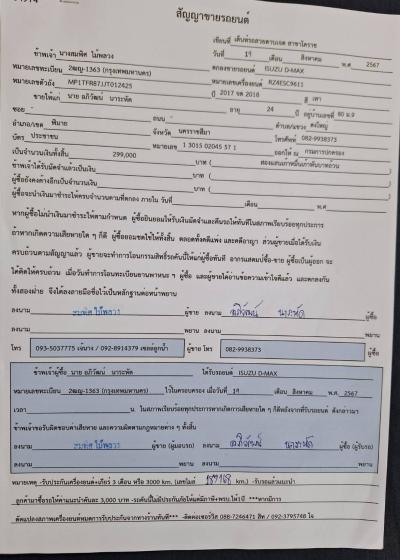 สัญญาขายรถยนต์
เขียนที่ เต็นท์รถสวยตามเจต สาขาโคราช
วันที่ 19 เดือน สิงหาคม พ.ศ 2567
ข้าพเจ้า นางสมพิศ ไม้พลวง ตกลงขายรถยนต์ ISUZU D-MAX
หมายเลขทะเบียน 2ฒญ-1363 (กรุงเทพมหานคร) หมายเลขเครื่องยนต์ RZ4ESC9611
หมายเลขตัวถัง MP1TFR87JJT012425 ปี 2017 จด 2018 สี เทา
ขายให้แก่ นาย อภิวัฒน์ นาระทัด อายุ 24 ปี อยู่บ้านเลขที่ 80 ม.9
ซอย - ถนน - ตำบล/แขวง ดงใหญ่
อำเภอ/เขต พิมาย จังหวัด นครราชสีมา โทรศัพท์ 082-9938373
บัตร ประชาชน หมายเลข 1 3015 02045 57 1 ออกให้ ณ กรมการปกครอง
เป็นจำนวนเงินทั้งสิ้น 299,000 บาท ( สองแสนเก้าหมื่นเก้าพันบาทถ้วน )
ข้าพเจ้าได้รับมัดจำแล้วเป็นเงิน บาท ( )
ผู้ซื้อยังคงค้างอีกเป็นจำนวนเงิน บาท ( )
ผู้ซื้อจะนำเงินมาชำระให้ครบจำนวนตามที่ตกลง ภายใน วันที่ เดือน พ.ศ
หากผู้ซื้อไม่นำเงินมาชำระให้ตามกำหนด ผู้ซื้อยินยอมให้ริบเงินมัดจำและคืนรถให้ทันทีในสภาพเรียบร้อยทุกประการ
ถ้าหากเกิดความเสียหายใด ๆ ก็ดี ผู้ซื้อยอมชดใช้ให้ทั้งสิ้น ตลอดทั้งคดีแพ่ง และคดีอาญา ส่วนผู้ขายเมื่อได้รับเงิน
ครบถ้วนตามสัญญาแล้ว ผู้ขายจะทำการโอนกรรมสิทธิ์รถคันนี้ให้แก่ผู้ซื้อทันที อากรแสตมป์ซื้อ-ขาย ผู้ซื้อเป็นผู้ออก จะ
ได้คิดให้ครบถ้วน เมื่อวันทำการโอนทะเบียนยานพาหนะ ฯ ผู้ซื้อ และผู้ขายได้อ่านข้อความเข้าใจดีแล้ว และตกลงกัน
ทั้งสองฝ่าย จึงได้ลงลายมือชื่อไว้เป็นหลักฐานต่อหน้าพยาน
ลงนาม สมพิศ ไม้พลวง ผู้ขาย ลงนาม อภิวัฒน์ นาระทัด ผู้ซื้อ
ลงนาม พยาน ลงนาม พยาน
โทร 093-5037775 เจ๊นาง / 092-8914379 เซลล์ลูกน้ำ ผู้ขาย โทร 082-9938373 ผู้ซื้อ
ข้าพเจ้าผู้ซื้อ นาย อภิวัฒน์ นาระทัด ได้รับรถยนต์ ISUZU D-MAX
หมายเลขทะเบียน 2ฒญ-1363 (กรุงเทพมหานคร) ไว้ในครอบครอง เมื่อวันที่ 19 เดือน สิงหาคม พ.ศ 2567
เวลา น. ในสภาพเรียบร้อยทุกประการหากเกิดการเสียหายใด ๆ ก็ดีหลังจากที่รับรถยนต์ ดังกล่าวมา
ข้าพเจ้าขอรับผิดชอบค่าเสียหาย และความผิดตามกฎหมายต่าง ๆ ทั้งสิ้น
ลงนาม สมพิศ ไม้พลวง ผู้ขาย (ผู้มอบรถ) ลงนาม อภิวัฒน์ นาระทัด ผู้ซื้อ (ผู้รับรถ)
ลงนาม พยาน ลงนาม พยาน
หมายเหตุ -รับประกันเครื่องยนต์+เกียร์ 3 เดือน หรือ 3000 km. (เลขไมล์ km.) -รับรถแล้วแนะนำ
ลูกค้ามาซื้อรถให้ค่าแนะนำคันละ 3,000 บาท -รถคันนี้ไม่มีประกันภัยให้แต่มีภาษี+พรบ.ให้1ปี ***หากมีการ
ดัดแปลงสภาพเครื่องยนต์หมดการรับประกันจากทางร้านทันที*** -ติดต่อเซอร์วิส 088-7246471 สิท / 092-3795748 โจ